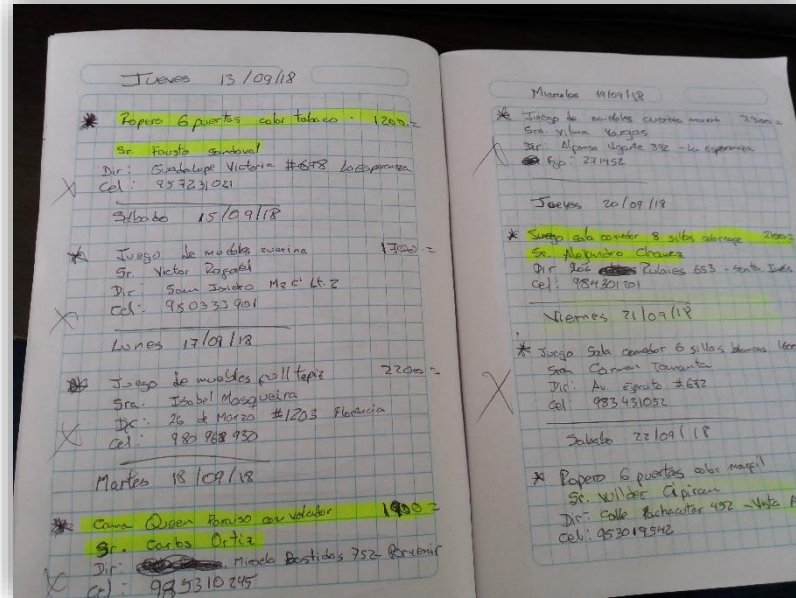 Jueves 13/09/18
* Ropero 6 puertas color tabaco. 1200.=
Sr. Fausto Sandoval
Dir: Guadalupe Victoria #678 La Esperanza
Cel: 957231021
Sábado 15/09/18
* Juego de muebles 1700.=
Sr. Victor
Dir: San Isidro Mz C' Lt. 2
Cel: 950333901
Lunes 17/09/18
* Juego de muebles tapiz 2200=
Sra. Isabel Mosqueira
Dir: 26 de Marzo #1203 Florencia
Cel: 980 968 930
Martes 18/09/18
* Cama Queen Paraiso con velador 1900=
Sr. Carlos Ortiz
Dir: Bastidas 752 Porvenir
Cel: 985310245
Miercoles 19/09/18
* Juego de muebles 2300=
Sra. Vilma Vargas
Dir: Alfonso Ugarte 392 - La esperanza
Fijo: 271952
Jueves 20/09/18
* Juego sala comedor 8 sillas
Sr. Alejandro Chavez
Dir Los Rubies 653 - Santa Ines
Cel: 984301201
Viernes 21/09/18
* Juego Sala comedor 6 sillas blancas
Sra Carmen
Dir: Av. Ejercito #632
Cel: 983431052
Sabado 22/09/18
* Ropero 6 puertas color marfil
Sr. Wilder
Dir: Calle Pachacutec 492 - Vista
Cel: 953019542